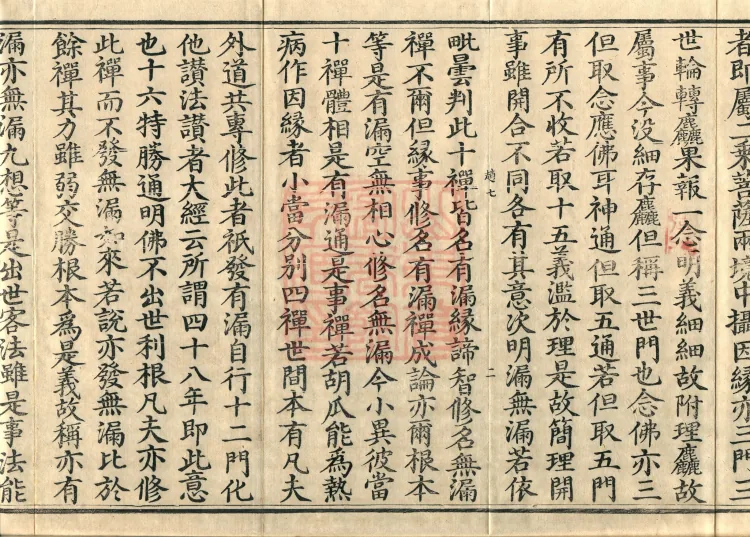 者即屬二乘菩薩兩境中攝因緣亦三門三
世輪轉麤果報一念明義細細故附理麤故
屬事今沒細存麤但稱三世門也念佛亦三
但取念應佛耳神通但取五通若但取五門
有所不收若取十五義濫於理是故簡理開
事雖開合不同各有其意次明漏無漏若依
趙七
二
毗曇判此十禪皆名有漏緣諦智修名無漏
禪不爾但緣事修名有漏禪成論亦爾根本
等是有漏空無相心修名無漏今小異彼當
十禪體相是有漏通是事禪若胡瓜能為熱
病作因緣者小當分別四禪世間本有凡夫
外道共專修此者秖發有漏自行十二門化
他讚法讚者大經云所謂四十八年即此意
也十六特勝通明佛不出世利根凡夫亦修
此禪而不發無漏如來若說亦發無漏比於
餘禪其力雖弱交勝根本為是義故稱亦有
漏亦無漏九想等是出世客法雖是事法能